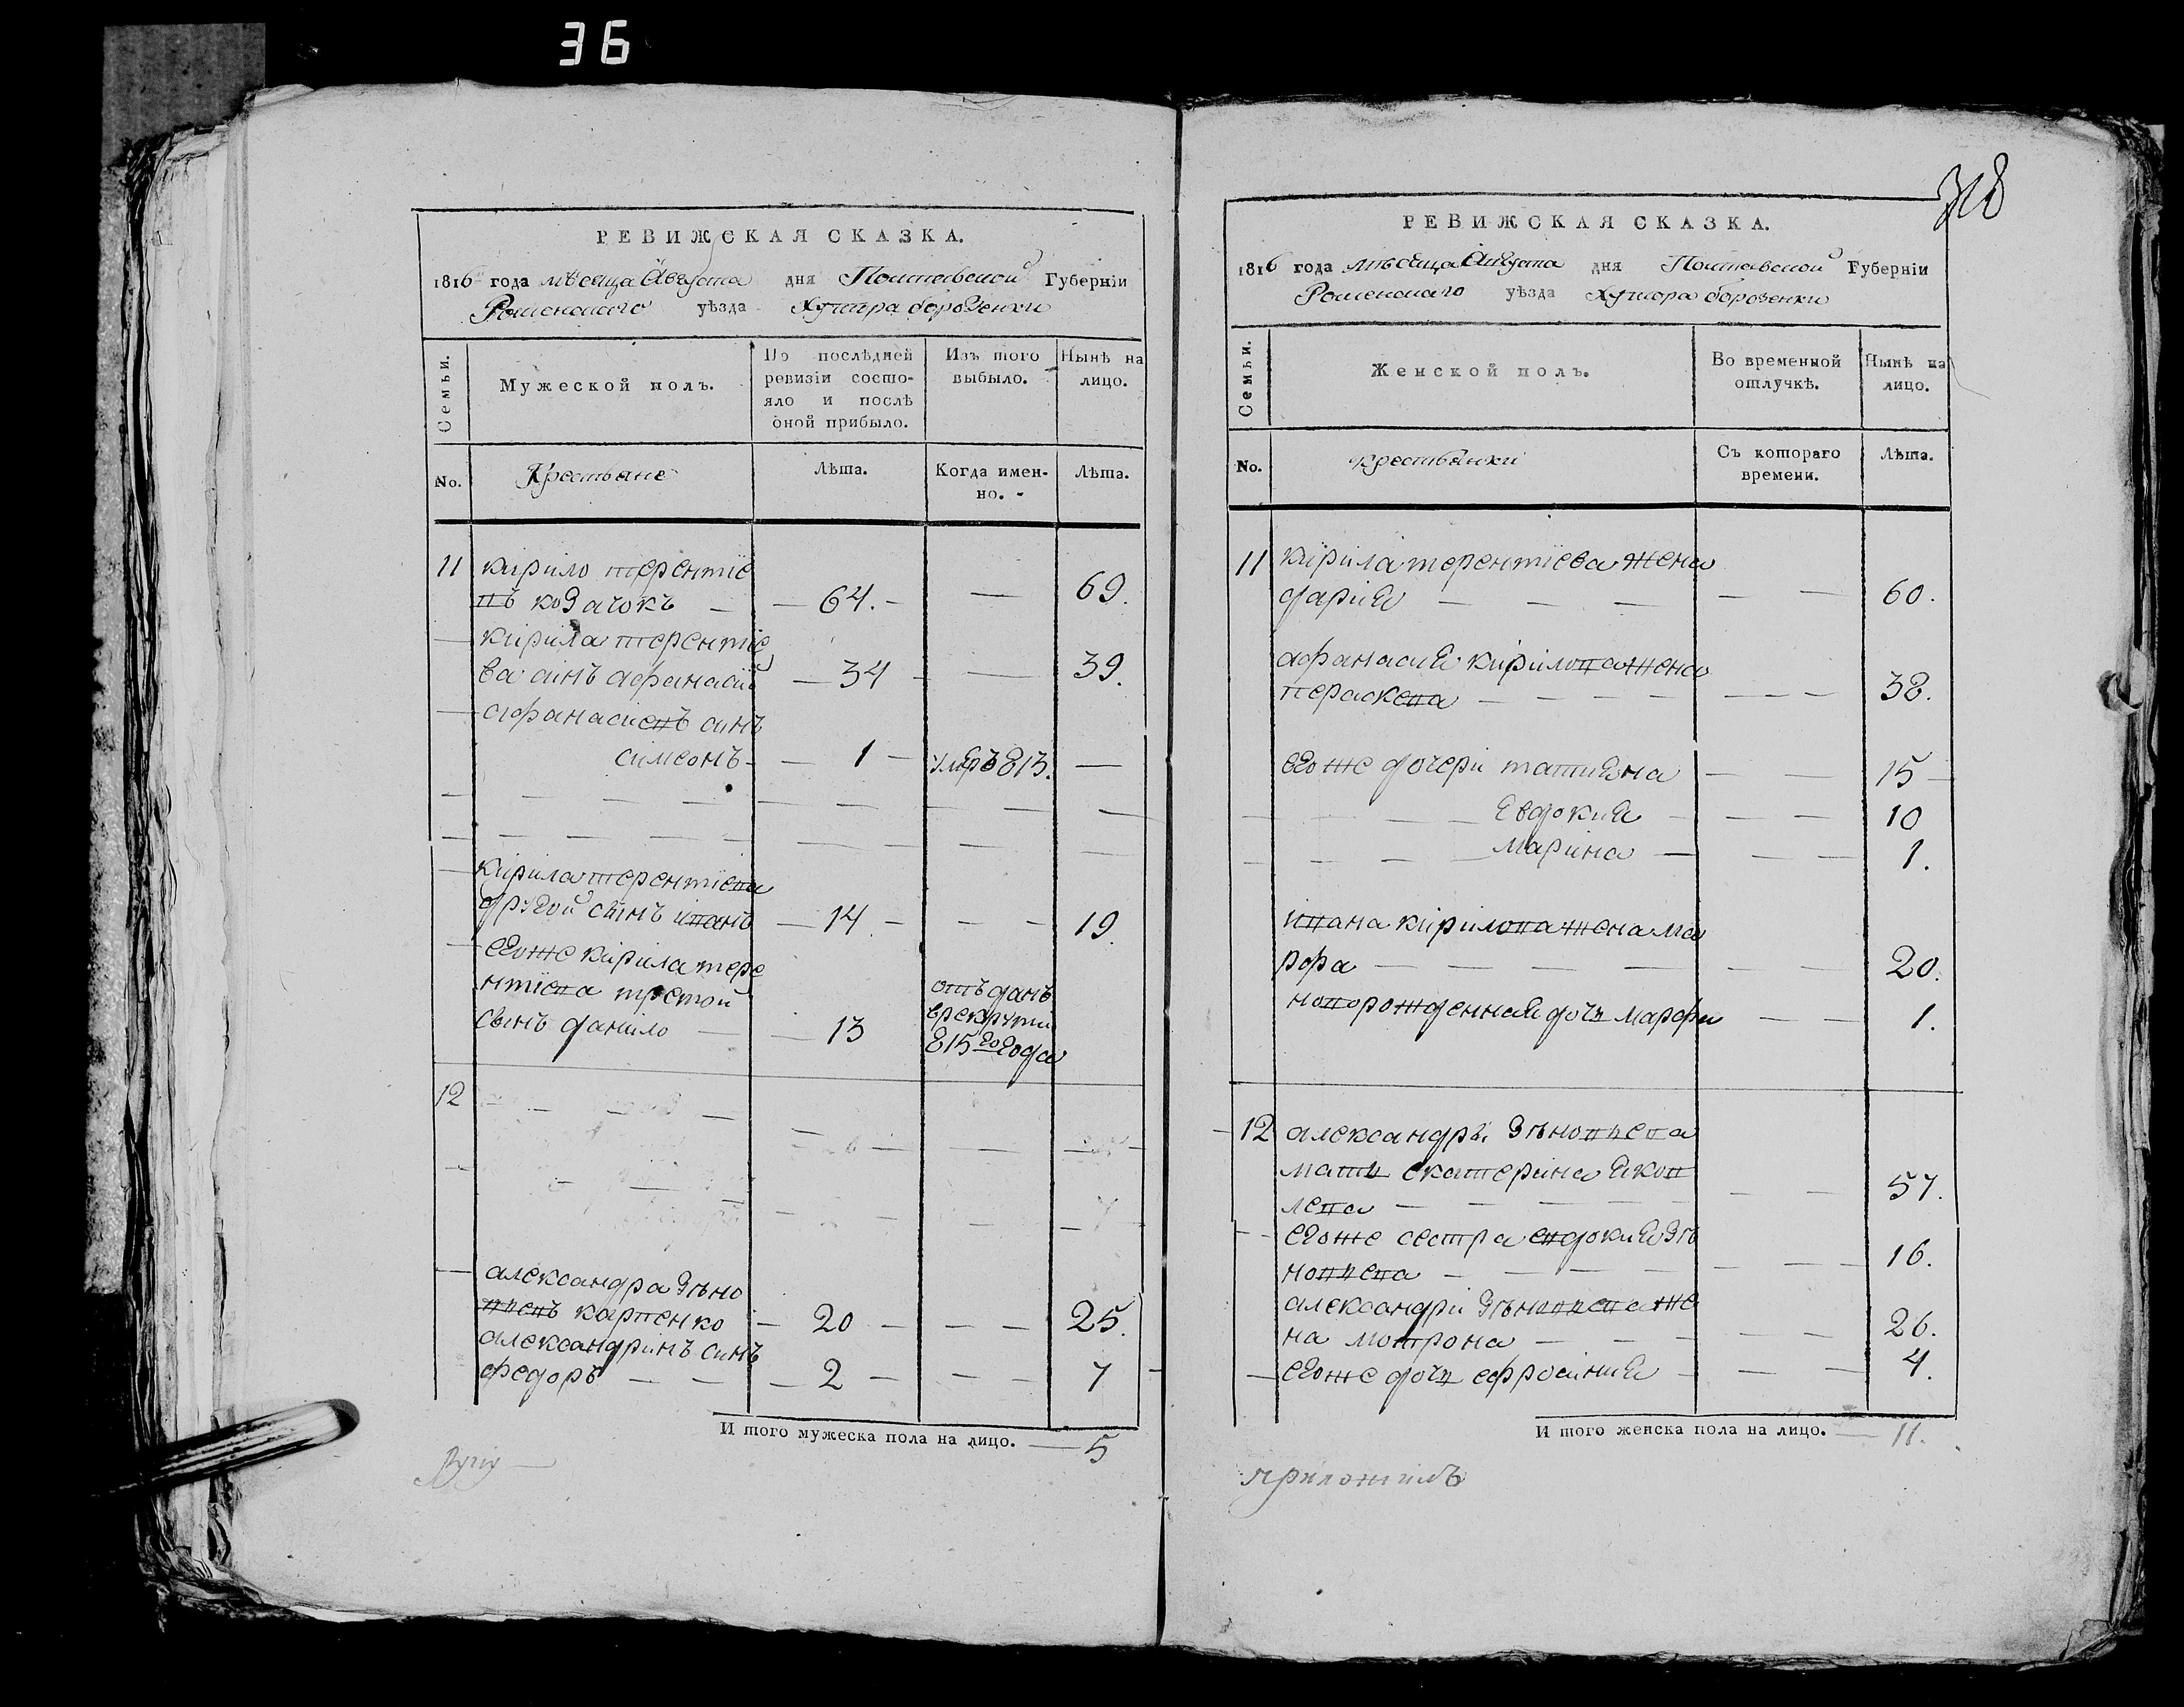 36
РЕВИЖСКАЯ СКАЗКА.
1816 года мѣсяца Августа дня Полтавской Губернiи
Роменскаго уѣзда Хутора борозенки
Семьи.
Мужеской полъ.
По послѣдней ревизiи состояло и послѣ оной прибыло.
Изъ того выбыло.
Нынѣ на лицо.
No.
Крестьяне
Лѣта.
Когда именно.
Лѣта.
11 кирило терентiе
въ козачокъ — — 64. — — 69.
— кирила терентiе
ва синъ афанасiй — 34 — — 39.
— афанасиевъ синъ
симеонъ — — 1 — умеръ 813. —
— кiрила терентiева
другой сынъ иванъ — 14. — — — 19
— егоже кiрила тере
нтiева третой
сынъ данило — — 13
отъданъ
врекрути
815го года
12
— александра Зѣно
вiевъ карпенко — 20 — — — 25.
александринъ синъ
федоръ — — — 2 — — — 7
И того мужеска пола на лицо. — 5
Руку —
318
РЕВИЖСКАЯ СКАЗКА.
1816 года мѣсяца Августа дня Полтавской Губернiи
Роменскаго уѣзда Хутора борозенки
Семьи.
Женской полъ.
Во временной отлучкѣ.
Нынѣ на лицо.
No.
крестьянки
Съ котораго времени.
Лѣта.
11 кiрила терентiева жена
дария — — — — — 60.
афанасия кирилова жена
пераскева — — — — — — — 38.
егоже дочерi татияна — — 15 —
— — — — Евдокия — — — 10
— — — — марина — — — 1.
ивана кiрилова жена ма
рфа — — — — — — 20.
новорожденная дочь марфа — — 1.
— 12 александръ Зѣновиева
мать екатерина яков
лева — — — — — — 57.
— егоже сестра евдокия Зѣ
новиева — — — — — — 16.
александрi Зѣновиева же
на мотрона — — — — — 26.
— егоже дочь ефросиния — — — 4.
И того женска пола на лицо. — 11.
приложилъ